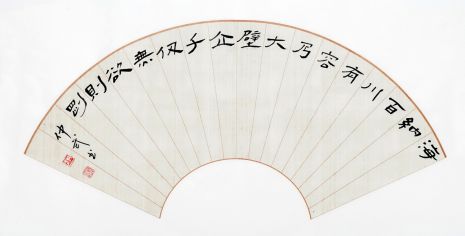 海納百川有容乃大壁立千仞無欲則剛
仲武书